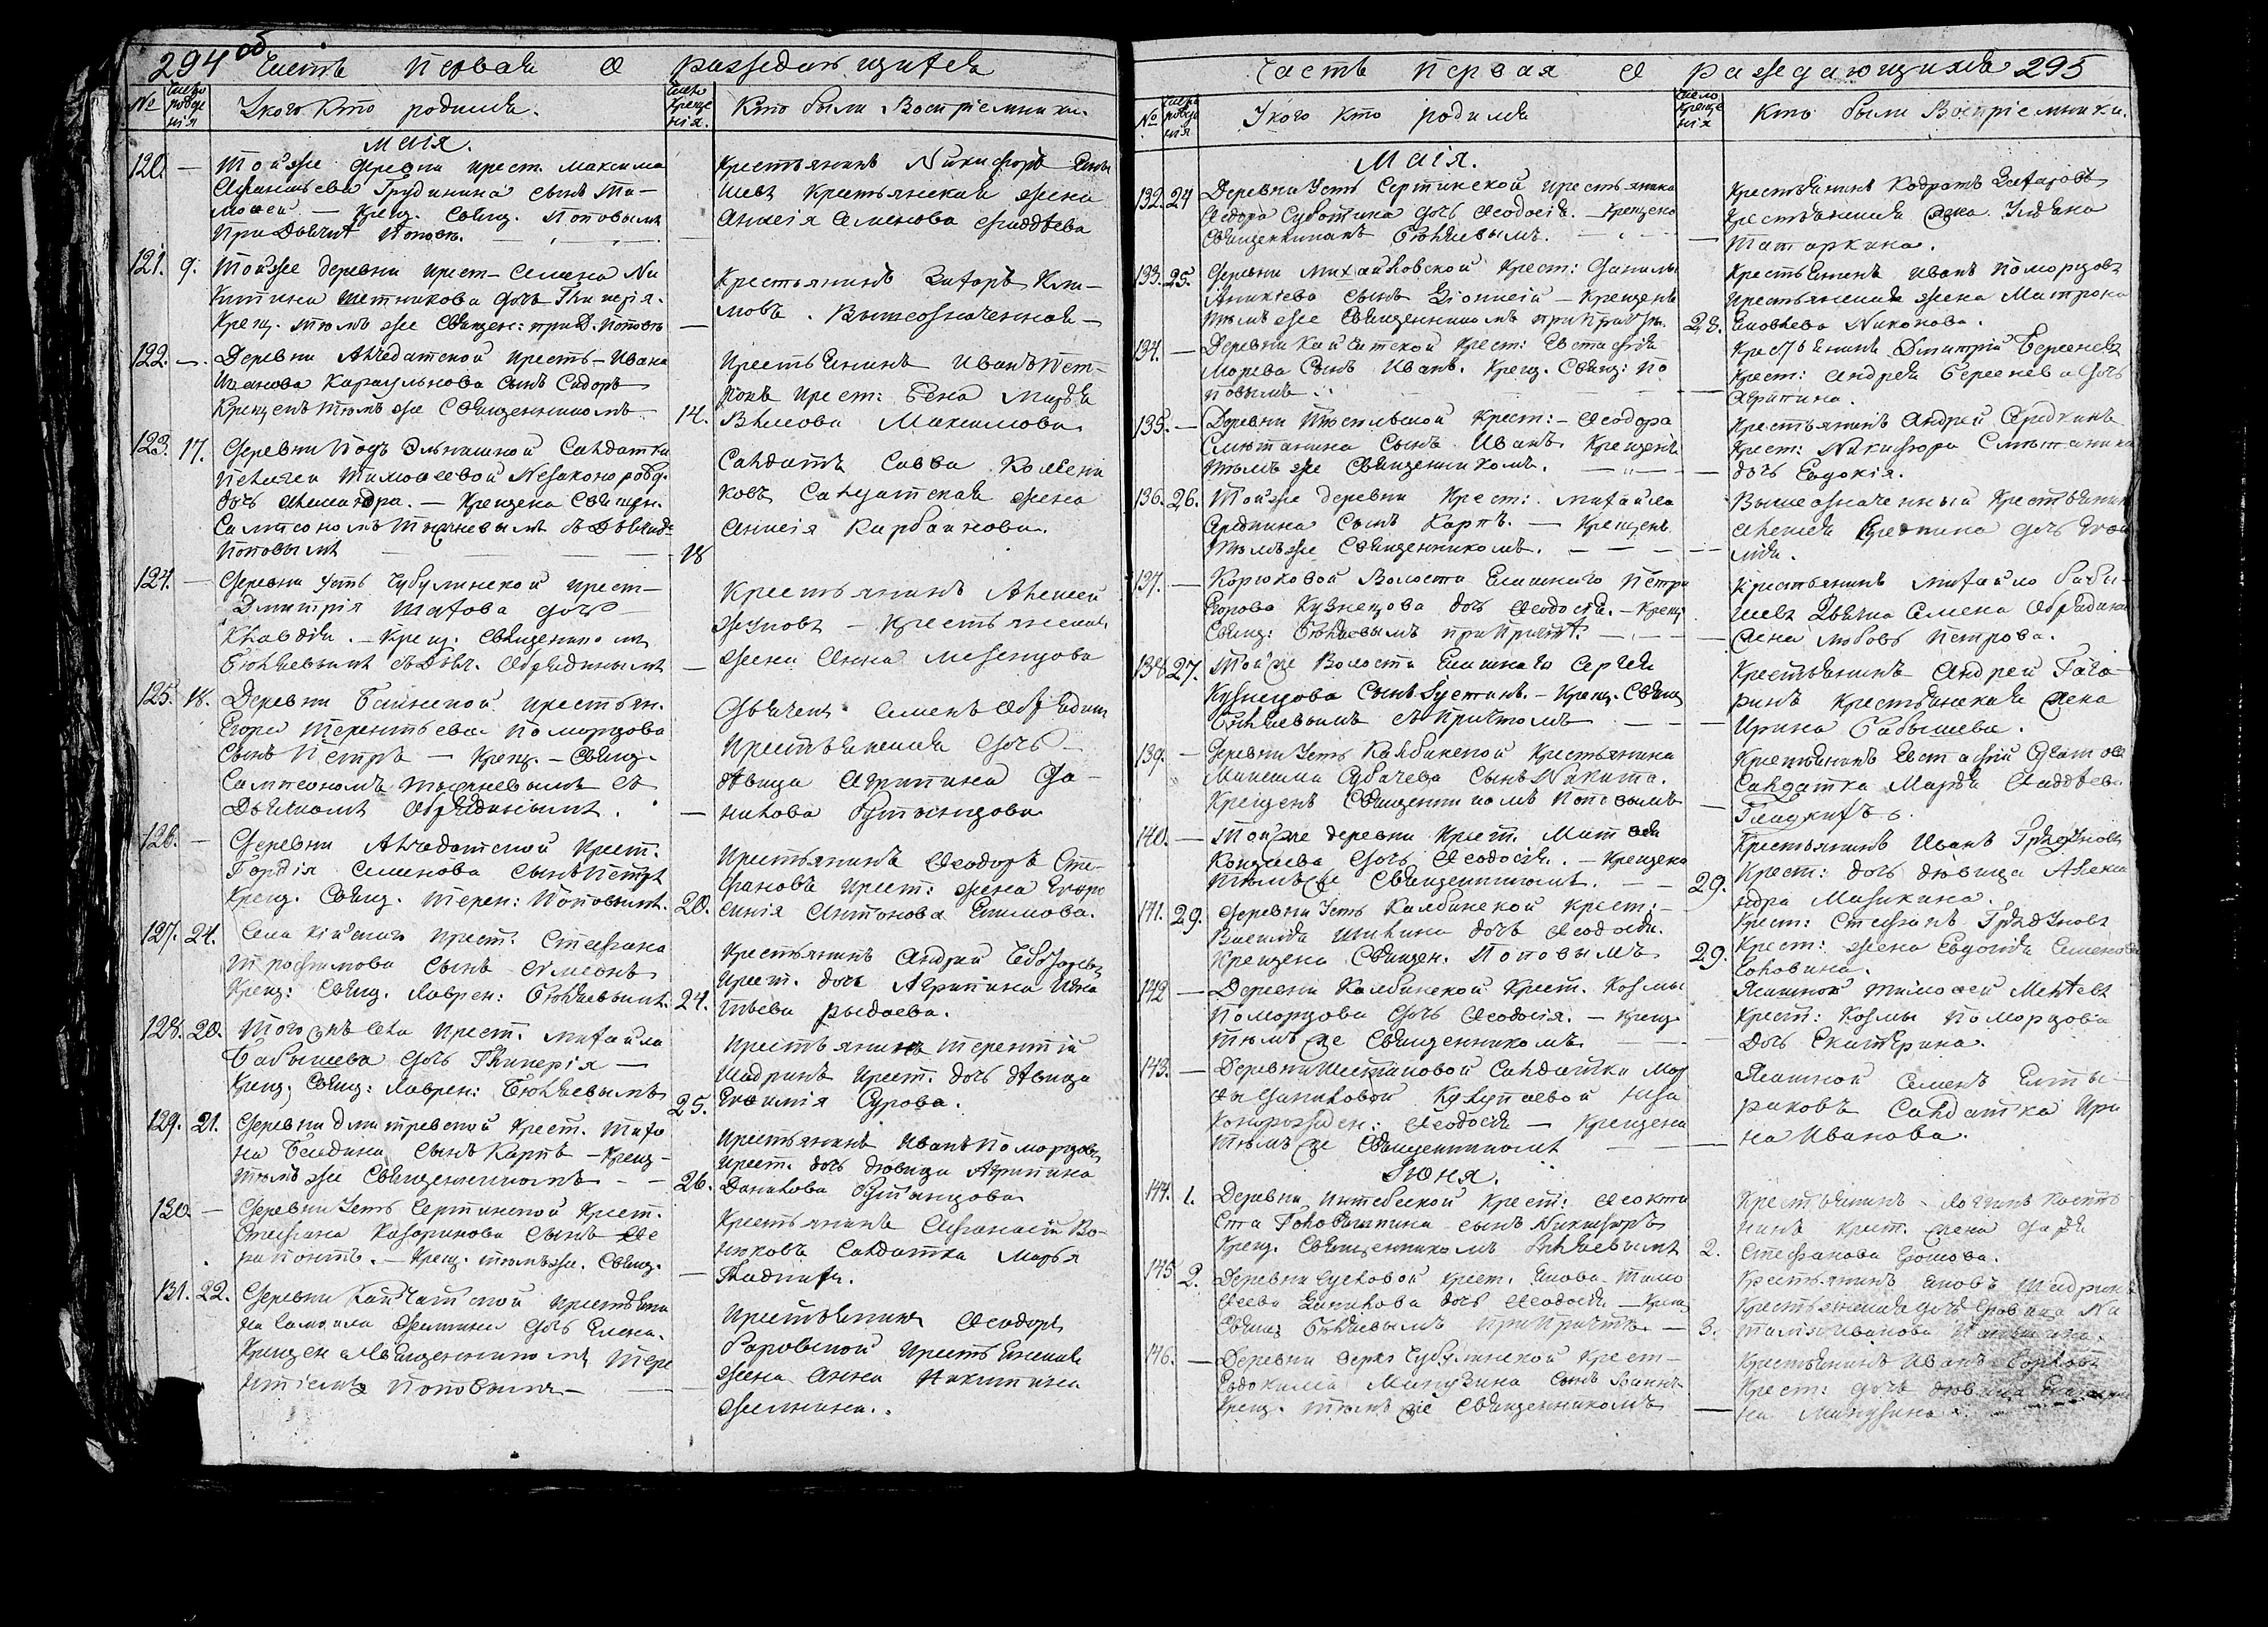 294 об
Часть первая о раждающихся
№ Число рожде нія У кого кто родился. Число креще нія. Кто были Воспріемники.
Маія.
120. — Тойже деревни крест. Максима
Афанасьева Грудинина сынъ Ти-
моѳей — Крещ. Свящ. Поповымъ
при Дьячкѣ Поповѣ. —
Крестьянинъ Никифоръ
шевъ Крестьянская жена
Анисія Семенова Фаддѣева
121. 9. Тойже деревни крест. Семена Ни
китина Шетникова дочь Гликерія.
Крещ. тѣмъ же Священ: при Д. Поповѣ —
Крестьянинъ Захаръ Кли-
мовъ. Вышеозначенная —
122. — Деревни Алчедатской кресть. Ивана
Иванова Караульнова сынъ Сидоръ
Крещенъ тѣмъ же Священникомъ — 14.
Крестьянинъ Иванъ Пет-
ровъ крест: жена Марѳа
Максимова
123. 17. Деревни Подъ Ельнишной Салдатки
Пелагеи Тимоѳеевой Незаконорожд.
дочь Александра. — Крещена Священ.
Сампсономъ Тыжневымъ съ Дьячк.
Поповымъ — 18
Салдатъ Савва Колесни
ковъ Салдатская жена
Анисія Карбаинова.
124. — Деревни Усть Чубулинской крест—
Дмитрія Шахова дочь
Клавдія. — Крещ. Священником
Бюляевымъ съ Дьяч. Обрядинымъ —
Крестьянинъ Алексей
Жуновъ — Крестьянская
жена Анна Мезенцова
125. 18. Деревни крестьян.
Егора Терентьева Поморцова
Сынъ Петръ — Крещ. — Свящ.
Сампсономъ Тыжневымъ съ
Дьячкомъ Обрядинымъ. —
Дьячекъ Семенъ Обрядинъ
Крестьянская дочь —
дѣвица Агрипина Да-
нилова
126. — Деревни Алчедатской Крест.
Гордія Семенова сынъ Петръ
Крещ. Свящ. Терен: Поповымъ. 20.
Крестьянинъ Ѳеодоръ Сте-
фановъ крест: жена Евфро
синія Антонова Екимова.
127. 24. Села Кійскаго крест. Стефана
Трофимова сынъ Симеонъ
Крещ: Свящ. Лаврен: Бюляевымъ. 24.
Крестьянинъ Андрей
крест. дочь Агрипина Игна
тьева Рыдаева.
128. 20. Того жъ села крест. Михайла
Бабышева дочь Гликерія —
Крещ. Свящ: Лаврен: Бюляевымъ 25.
Крестьянинъ Терентій
Шадринъ крест. дочь дѣвица
Евѳимія Сурова.
129. 21. Деревни Дмитревской крест. Тихо
на Беядина сынъ Карпъ — Крещ—
тѣмъ же Священникомъ — — 26.
Крестьянинъ Иванъ Поморцовъ
крест. дочь дѣвица Агрипина
Данилова
130. — Деревни Усть Сертинской крест.
Стефана Каторинова сынъ Се
рапонтъ. — Крещ. тѣмъ же. Свящ. —
Крестьянинъ Афанасій Во-
нюковъ Салдатка Марья
Гладкихъ.
131. 22. Деревни Кайчатской крестьяни
на Самоила Жемкина дочь Елена.
Крещена Священникомъ Тере
нтіемъ Поповымъ — —
Крестьянинъ Ѳеодоръ
Боровской крестьянская
жена Анна Никитина
Жемкина.
Часть первая о раждающихся 295
№ Число рожде нія У кого кто родился Число креще нія Кто были Воспріемники.
Маія.
132. 24 Деревни Усть Сертинской крестьянина
Ѳедора Суботина дочь Ѳеодосія. — Крещена
Священникомъ Бюляевымъ. — —
Крестьянинъ Кодратъ Захаровъ
Крестьянская жена Ульяна
Татаркина.
133. 25. Деревни Михайловской Крест: Данилы
Аникіева сынъ Діонисій — Крещенъ
тѣмъ же Священникомъ при причтѣ. 28.
Крестьянинъ Иванъ Поморцовъ
крестьянская жена Матрона
Яковлева Никонова.
134. — Деревни Кайчатской крест: Евстафія
Морева Сынъ Иванъ. Крещ. Свящ: По
повымъ. —
Крестьянинъ Дмитрій Береневъ
Крест: Андрея Беренева дочь
Агрипина.
135. — Деревни Тюстевской крест: — Ѳеодора
Сметанина Сынъ Иванъ. Крещенъ
тѣмъ же Священникомъ. — —
Крестьянинъ Андрей Аредкинъ
Крест: Никифора Сметанина
дочь Евдокія.
136. 26. Тойже деревни Крест: Михайла
Аредкина сынъ Карпъ. — Крещенъ
тѣмъ же Священникомъ. — — —
Вышеозначенный Крестьянин
Алексея Аредкина дочь Евѳи
мія.
137. — Корюковой Волости Ясашнаго Петра
Егорова Кузнецова дочь Ѳеодосія. — Крещ
Свящ: Бюляевымъ при причтѣ. —
Крестьянинъ Михайло Бабы-
шевъ Дьячка Семена Обрядина
жена Любовь Петрова.
138 27. Той же Волости Ясашнаго Сергея
Кузнецова сынъ Іустинъ. — Крещ. Свящ
Бюляевымъ съ причтомъ — —
Крестьянинъ Андрей Гага-
ринъ Крестьянская жена
Ирина Бабышева.
139. — Деревни Усть Колбинской Крестьянина
Максима сынъ Никита.
Крещенъ Священникомъ Поповымъ —
Крестьянинъ Евстафій
Салдатка Марѳа Фаддѣева
Гладкихъ.
140. — Той же деревни Крест. Матѳея
Кондаева дочь Ѳеодосія. — Крещена
тѣмъ же Священникомъ. — — 29.
Крестьянинъ Иванъ Грядуновъ
Крест: дочь дѣвица Алекса
ндра Мазикина.
141. 29. Деревни Усть Колбинской крест: —
Василья Шилина дочь Ѳеодосія.
Крещена Священ. Поповымъ 29.
Крест: Стефанъ Грядуновъ
Крест: жена Евдокія Семенова
Головина.
142 — Деревни Колбинской Крест. Козмы
Поморцова дочь Ѳеодосія. — Крещ.
тѣмъ же Священникомъ —
Ясашной Тимоѳей
Крест: Козмы Поморцова
дочь Екатерина.
143. — Деревни Шестаковой Салдатки Мар
ѳы Даниловой незак
коннорожден: Ѳеодосія — Крещена
тѣмъ же Священникомъ —
Ясашной Семенъ Елты-
раковъ Салдатка Ири
на Иванова.
Іюня.
144. 1. Деревни Интебеской Крест: Ѳеокти
ста Головяшкина сынъ Никифоръ
Крещ. Священникомъ Бюляевымъ 2.
Крестьянинъ Логгинъ
Крест. жена Дарья
Стефанова Ершова.
145 2. Деревни Сусловой крест. Якова Тимо
ѳеева дочь Ѳеодосія — Крещ
Свящ: Бюляевымъ при причтѣ — 3.
Крестьянинъ Яковъ Шадринъ
Крестьянская дочь дѣвица На
талья Иванова
146. — Деревни верхъ Чубулинской Крест—
Евдокима Микушина сынъ Іоаннъ
Крещ. тѣмъ же Священникомъ —
Крестьянинъ Иванъ
Крест: дочь дѣвица Екатери
на Микушина.